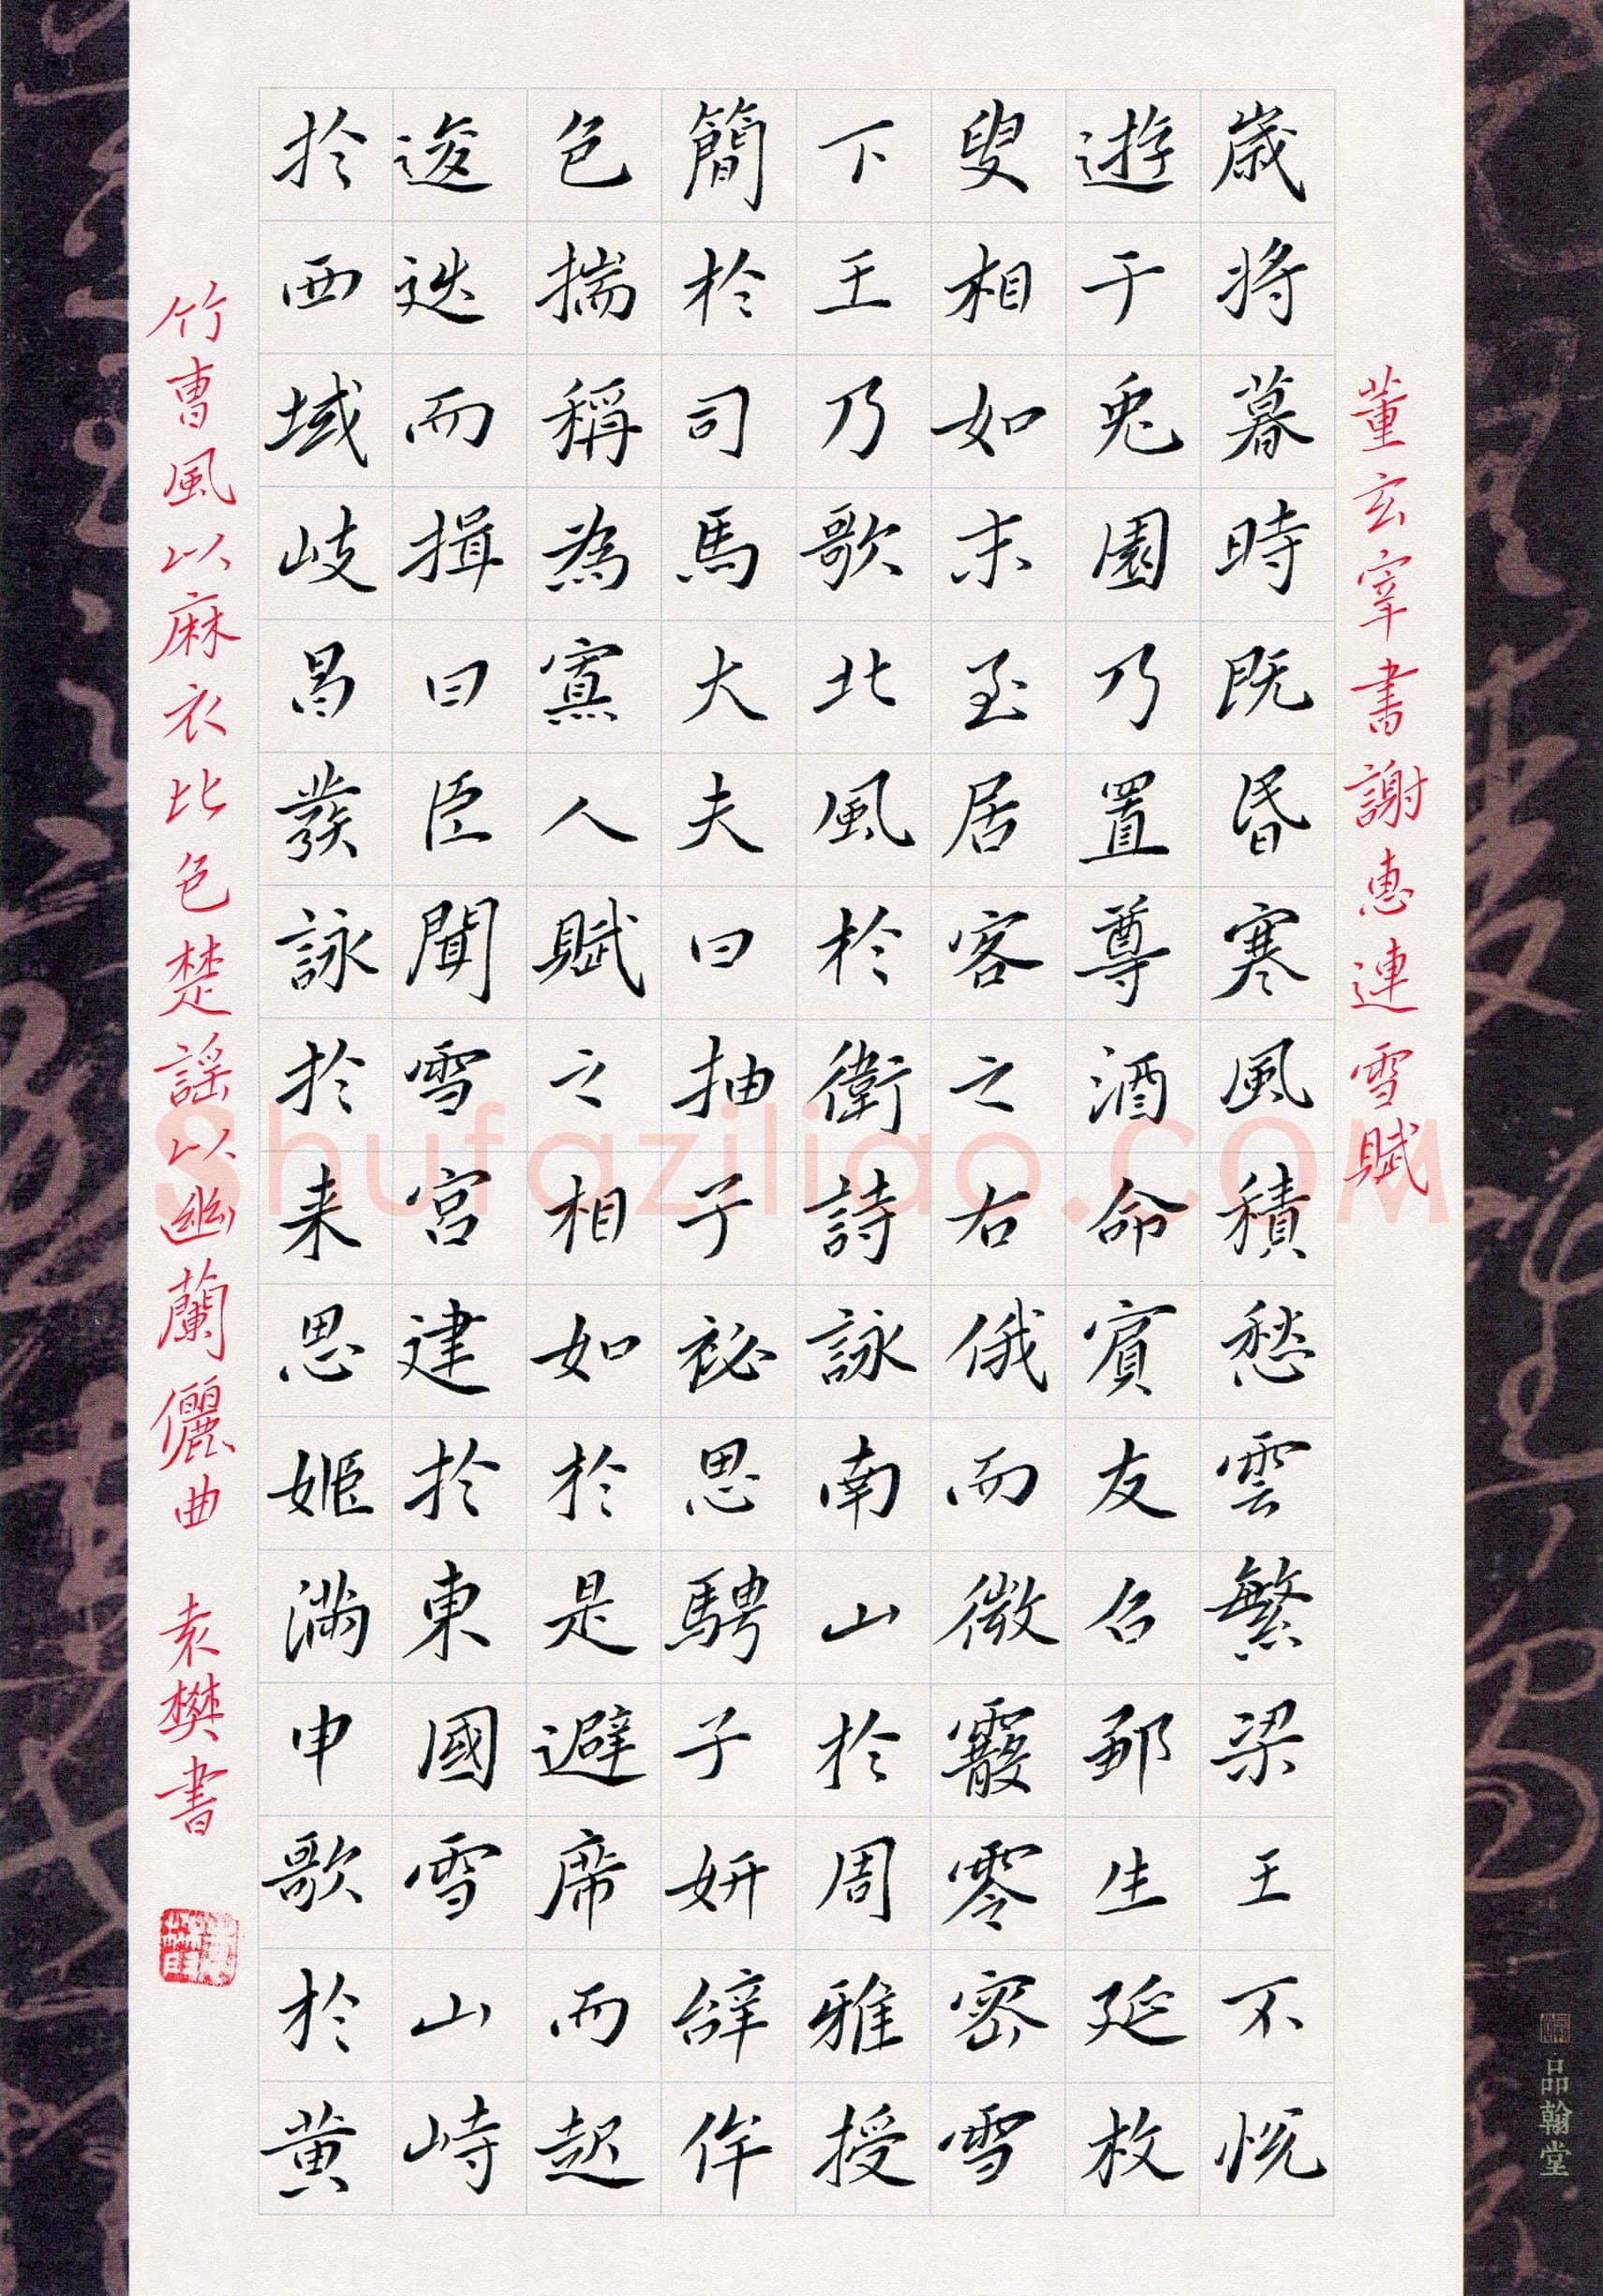 董玄宰書謝惠連雪賦
歲將暮時既昏寒風積愁雲繁梁王不悅
遊于兔園乃置尊酒命賓友召鄒生延枚
叟相如末至居客之右俄而微霰零密雪
下王乃歌北風於衛詩詠南山於周雅授
簡於司馬大夫曰抽子祕思騁子妍辭侔
色揣稱為寡人賦之相如於是避席而起
逡迭而揖曰臣聞雪宮建於東國雪山峙
於西域岐昌發詠於来思姬滿申歌於黃
竹曹風以麻衣比色楚謠以幽蘭儷曲 袁樊書
品翰堂
Shufaziliao.COM